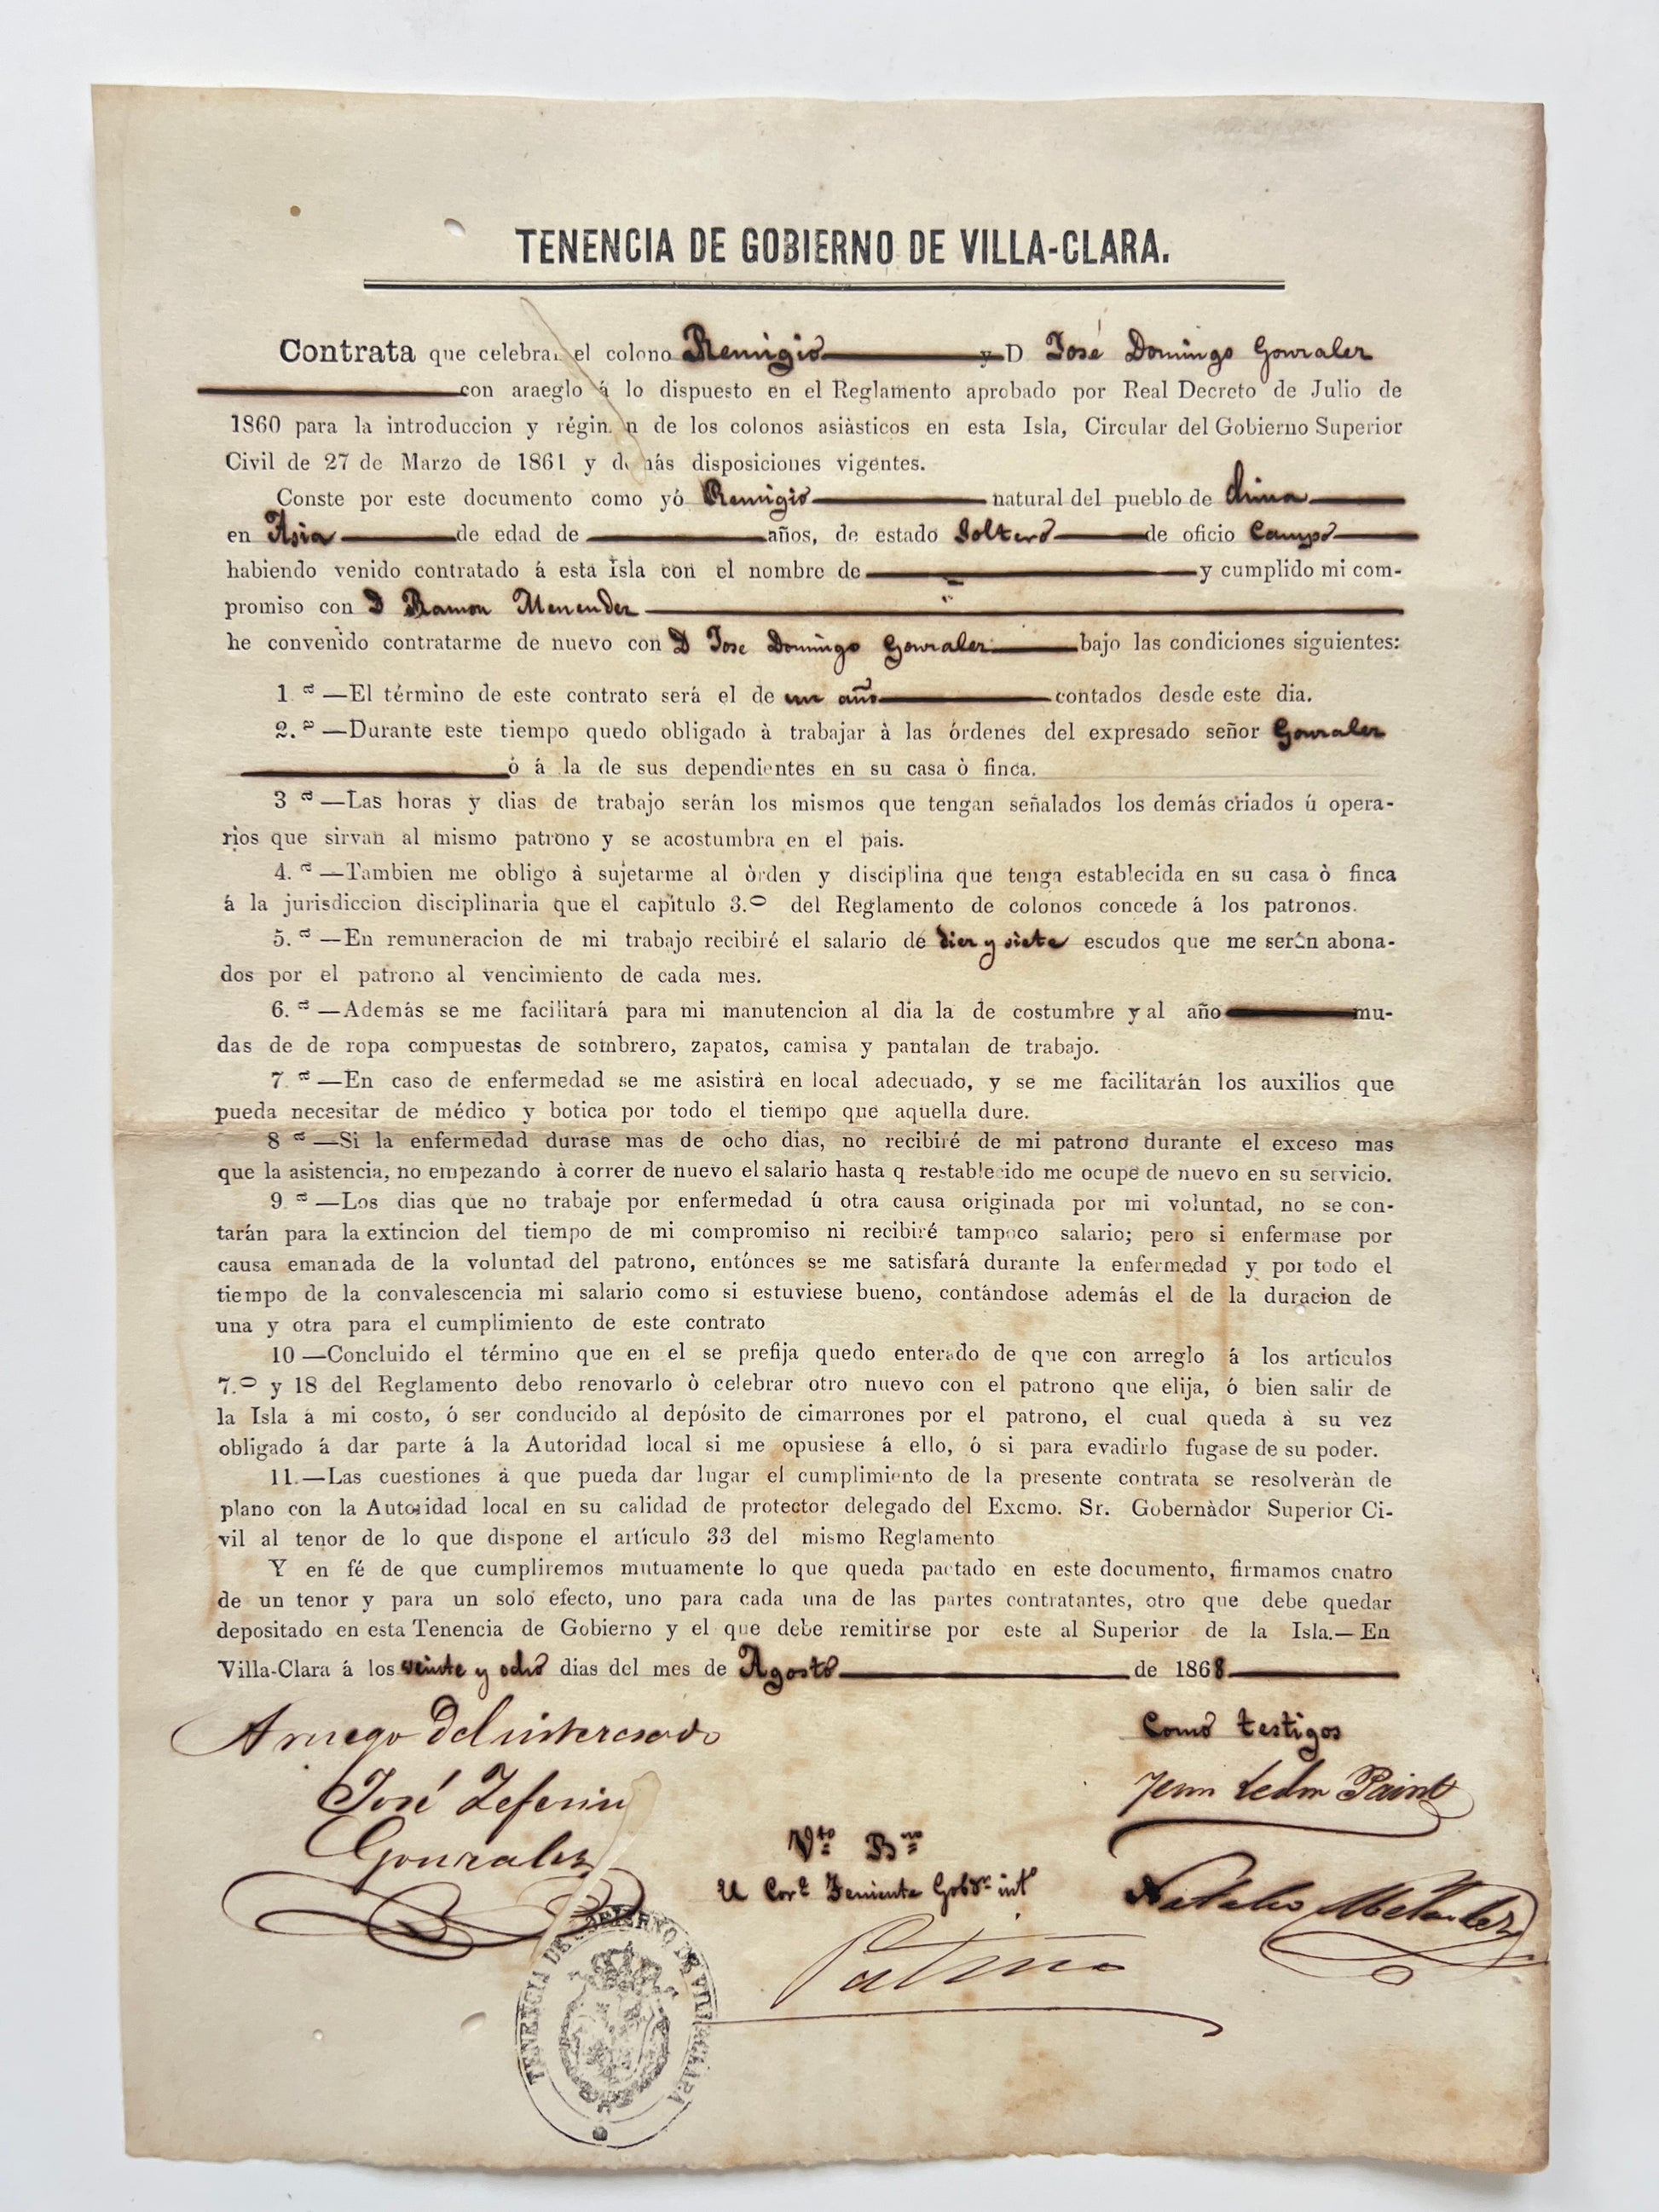 TENENCIA DE GOBIERNO DE VILLA-CLARA.
Contrata que celebran el colono Remigio y D José Domingo Gonzalez
con araeglo á lo dispuesto en el Reglamento aprobado por Real Decreto de Julio de
1860 para la introduccion y régimen de los colonos asiàsticos en esta Isla, Circular del Gobierno Superior
Civil de 27 de Marzo de 1861 y demás disposiciones vigentes.
Conste por este documento como yó Remigio natural del pueblo de china
en Asia de edad de años, de estado Soltero de oficio Campo
habiendo venido contratado á esta Isla con el nombre de y cumplido mi com-
promiso con D Ramon Menendez
he convenido contratarme de nuevo con D Jose Domingo Gonzalez bajo las condiciones siguientes:
1.ª —El término de este contrato será el de un año contados desde este dia.
2.ª —Durante este tiempo quedo obligado à trabajar à las órdenes del expresado señor Gonzalez
ò á la de sus dependientes en su casa ò finca.
3 ª —Las horas y dias de trabajo serán los mismos que tengan señalados los demás criados ú opera-
rios que sirvan al mismo patrono y se acostumbra en el pais.
4. ª —Tambien me obligo à sujetarme al òrden y disciplina que tenga establecida en su casa ò finca
á la jurisdiccion disciplinaria que el capitulo 3.º del Reglamento de colonos concede á los patronos.
5. ª —En remuneracion de mi trabajo recibiré el salario de diez y siete escudos que me serán abona-
dos por el patrono al vencimiento de cada mes.
6. ª —Además se me facilitará para mi manutencion al dia la de costumbre y al año mu-
das de de ropa compuestas de sombrero, zapatos, camisa y pantalan de trabajo.
7 ª —En caso de enfermedad se me asistirà en local adecuado, y se me facilitarán los auxilios que
pueda necesitar de médico y botica por todo el tiempo que aquella dure.
8 ª —Si la enfermedad durase mas de ocho dias, no recibiré de mi patrono durante el exceso mas
que la asistencia, no empezando à correr de nuevo el salario hasta q restablecido me ocupe de nuevo en su servicio.
9 ª —Los dias que no trabaje por enfermedad ú otra causa originada por mi voluntad, no se con-
tarán para la extincion del tiempo de mi compromiso ni recibiré tampoco salario; pero si enfermase por
causa emanada de la voluntad del patrono, entónces se me satisfará durante la enfermedad y por todo el
tiempo de la convalescencia mi salario como si estuviese bueno, contándose además el de la duracion de
una y otra para el cumplimiento de este contrato
10 —Concluido el término que en el se prefija quedo enterado de que con arreglo á los artículos
7.º y 18 del Reglamento debo renovarlo ò celebrar otro nuevo con el patrono que elija, ó bien salir de
la Isla á mi costo, ó ser conducido al depósito de cimarrones por el patrono, el cual queda à su vez
obligado á dar parte á la Autoridad local si me opusiese á ello, ó si para evadirlo fugase de su poder.
11.—Las cuestiones á que pueda dar lugar el cumplimiento de la presente contrata se resolveràn de
plano con la Autoridad local en su calidad de protector delegado del Excmo. Sr. Gobernàdor Superior Ci-
vil al tenor de lo que dispone el artículo 33 del mismo Reglamento
Y en fé de que cumpliremos mutuamente lo que queda pactado en este documento, firmamos cuatro
de un tenor y para un solo efecto, uno para cada una de las partes contratantes, otro que debe quedar
depositado en esta Tenencia de Gobierno y el que debe remitirse por este al Superior de la Isla.—En
Villa-Clara á los veinte y ocho dias del mes de Agosto de 1868
A ruego del interesado
Como testigos
José Zeferino
Gonzalez
Vto Bno
El Corl Teniente Gobor intº
Natalio
Patiño
TENENCIA DE GOBIERNO DE VILLA-CLARA